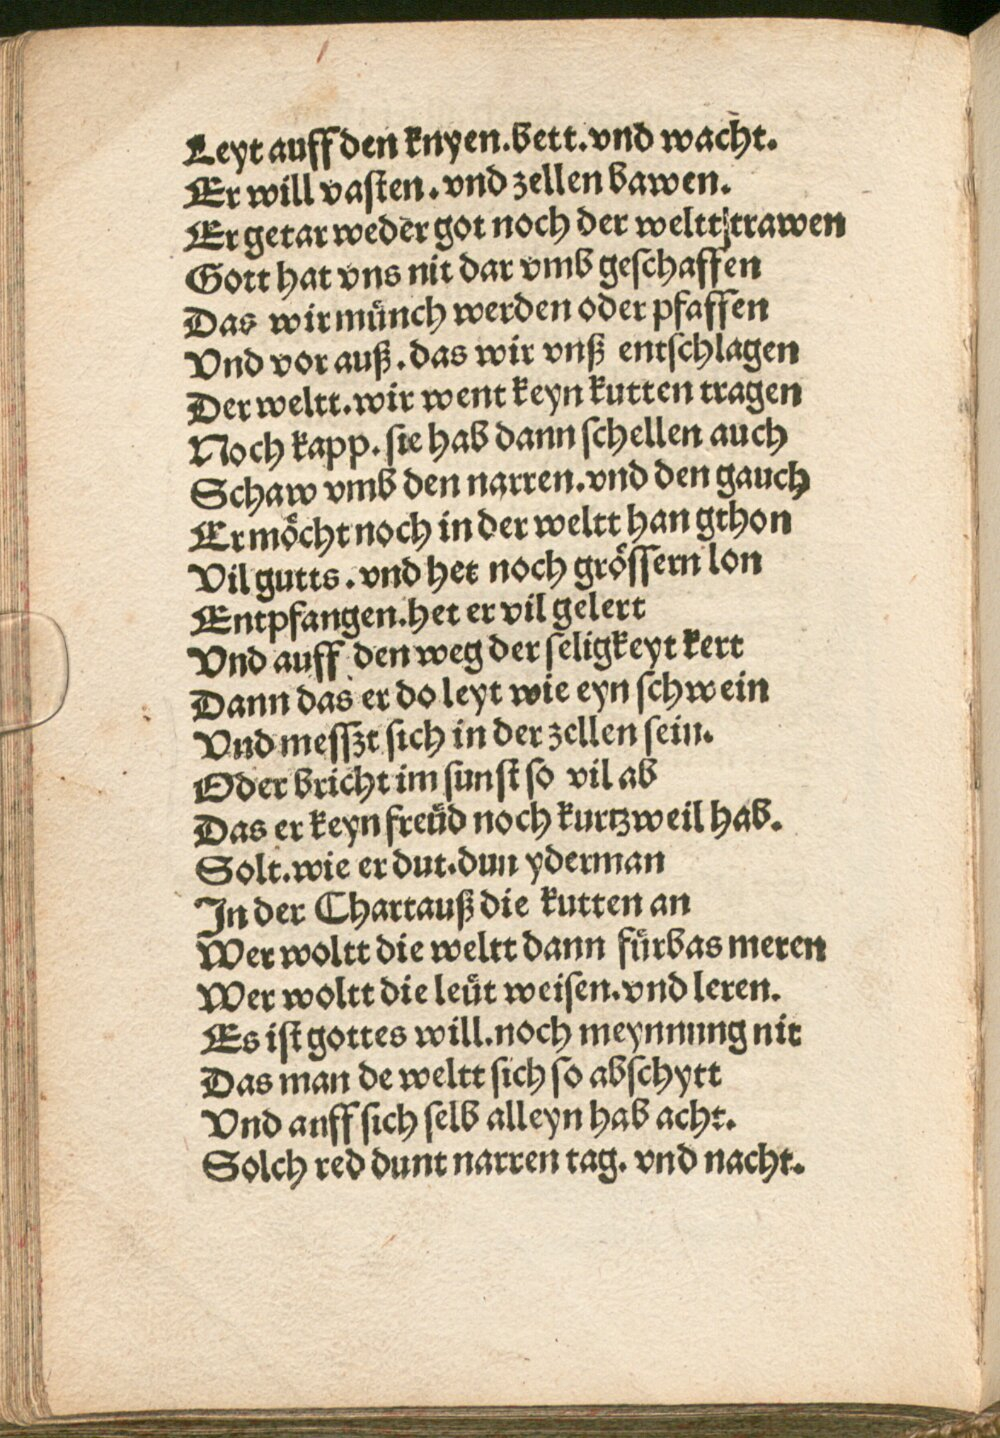 Leyt auff den knyen. bett. vnd wacht.
Er will vasten. vnd zellen bawen.
Er getar weder got noch der weltt trawen
Gott hat vns nit dar vmb geschaffen
Das wir münch werden oder pfaffen
Vnd vor auß. das wir vnß entschlagen
Der weltt. wir went keyn kutten tragen
Noch kapp. sie hab dann schellen auch
Schaw vmb den narren. vnd den gauch
Er möcht noch in der weltt han gthon
Vil gutts. vnd het noch grössern lon
Entpfangen. het er vil gelert
Vnd auff den weg der seligkeyt kert
Dann das er do leyt wie eyn schwein
Vnd messzt sich in der zellen sein.
Oder bricht im sunst so vil ab
Das er keyn freüd noch kurtzweil hab.
Solt. wie er dut. dun yderman
In der Chartauß die kutten an
Wer woltt die weltt dann fürbas meren
Wer woltt die leüt weisen. vnd leren.
Es ist gottes will. noch meynnung nit
Das man de weltt sich so abschytt
Vnd anff sich selb alleyn hab acht.
Solch red dunt narren tag. vnd nacht.